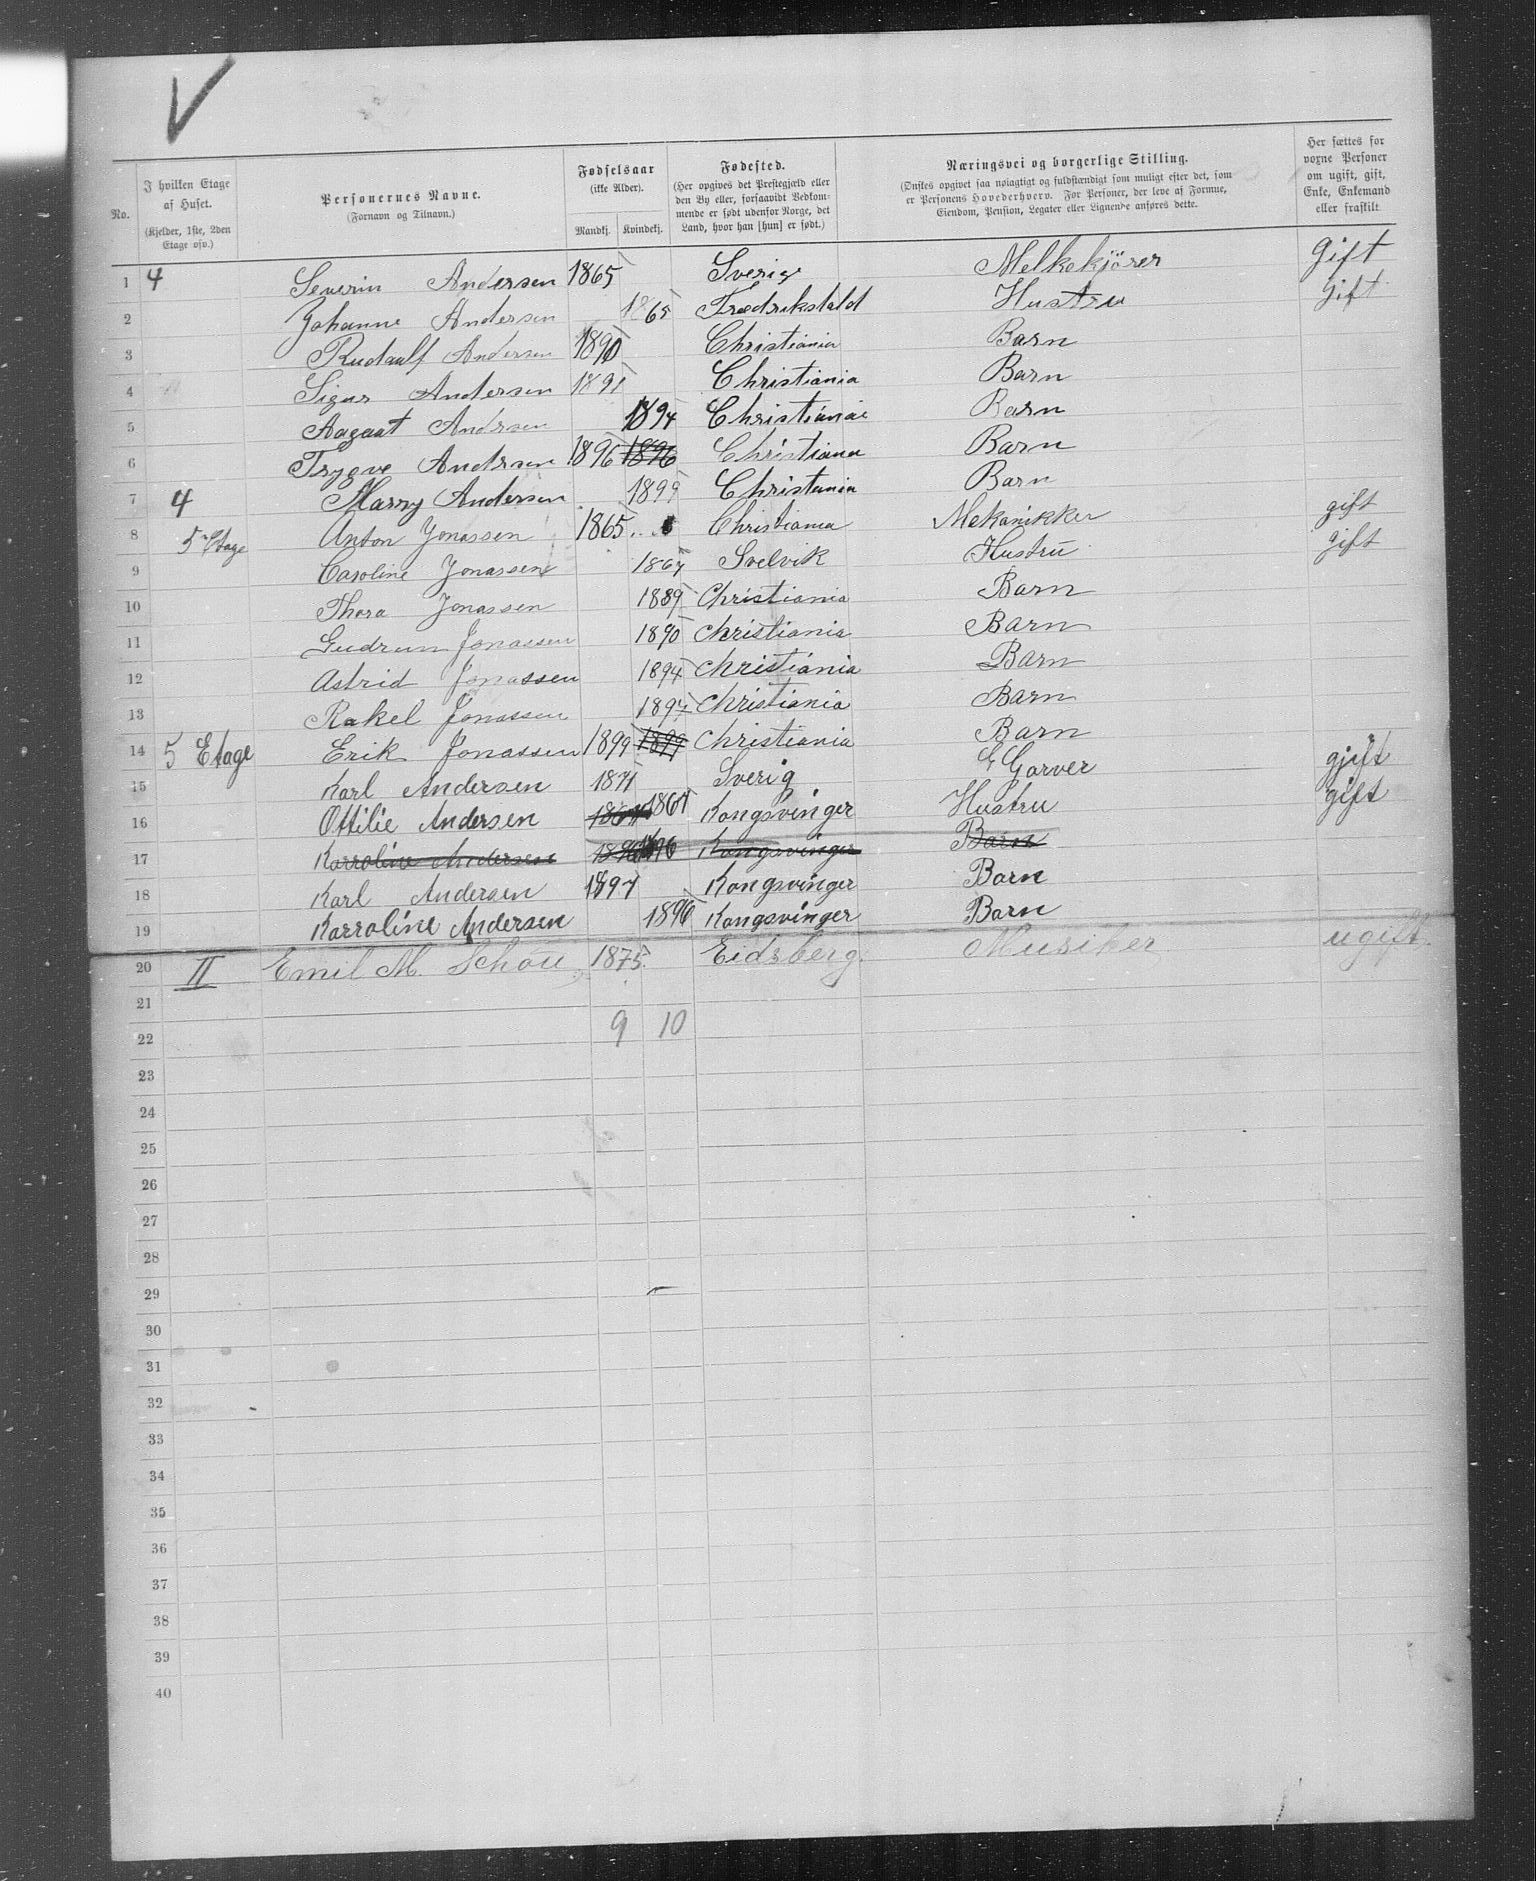 V
No.
I hvilken Etage af Huset. (Kjelder, 1ste, 2den Etage osv.)
Personernes Navne. (Fornavn og Tilnavn.)
Fødselsaar (ikke Alder). Mandkj. Kvindekj.
Fødested. (Her opgives det Prestegjæld eller den By eller, forsaavidt Vedkommende er født udenfor Norge, det Land, hvor han [hun] er født.)
Næringsvei og borgerlige Stilling. (Ønskes opgivet saa nøiagtigt og fuldstændigt som muligt efter det, som er Personens Hovederhverv. For Personer, der leve af Formue, Eiendom, Pension, Legater eller Lignende anføres dette.
Her sættes for voxne Personer om ugift, gift, Enke, Enkemand eller fraskilt
1 4 Severin Andersen 1865 Sverige Melkekjörer Gift
2 Johanne Andersen 1865 Fredrikstald Hustru Gift
3 Rudaulf Andersen 1890 Christiania Barn
4 Sigur Andersen 1891 Christiania Barn
5 Aagaat Andrsen 1894 Christianae Barn
6 Trygve Andrsen 1896 1896 Christiana Barn
7 4 Marry Andersen 1899 Christania Barn
8 5 Etage Anton Jonassen 1865 Christiania Mekanikker gift
9 Caroline Jonassen 1867 Svelvik Hustru gift
10 Thora Jonassen 1889 Christiania Barn
11 Gudrun Jonassen 1890 Christiania Barn
12 Astrid Jonassen 1894 Christiania Barn
13 Rakel Jonassen 1897 Christiania Barn
14 5 Etage Erik Jonassen 1899 1899 Christiania Barn
15 Karl Andersen 1871 Sverig Garver gjift
16 Ottilie Andersen 1867 1867 Kongsvinger Hustru gift
17 Karroline Andersen 1896 1896 Kongsvinger Barn
18 Karl Andersen 1897 Kongsvinger Barn
19 Karroline Andersen 1896 Kongsvinger Barn
20 II Emil M. Schou 1875. Eidsberg. Musiker ugift.
21
22 9 10
23
24
25
26
27
28
29
30
31
32
33
34
35
36
37
38
39
40